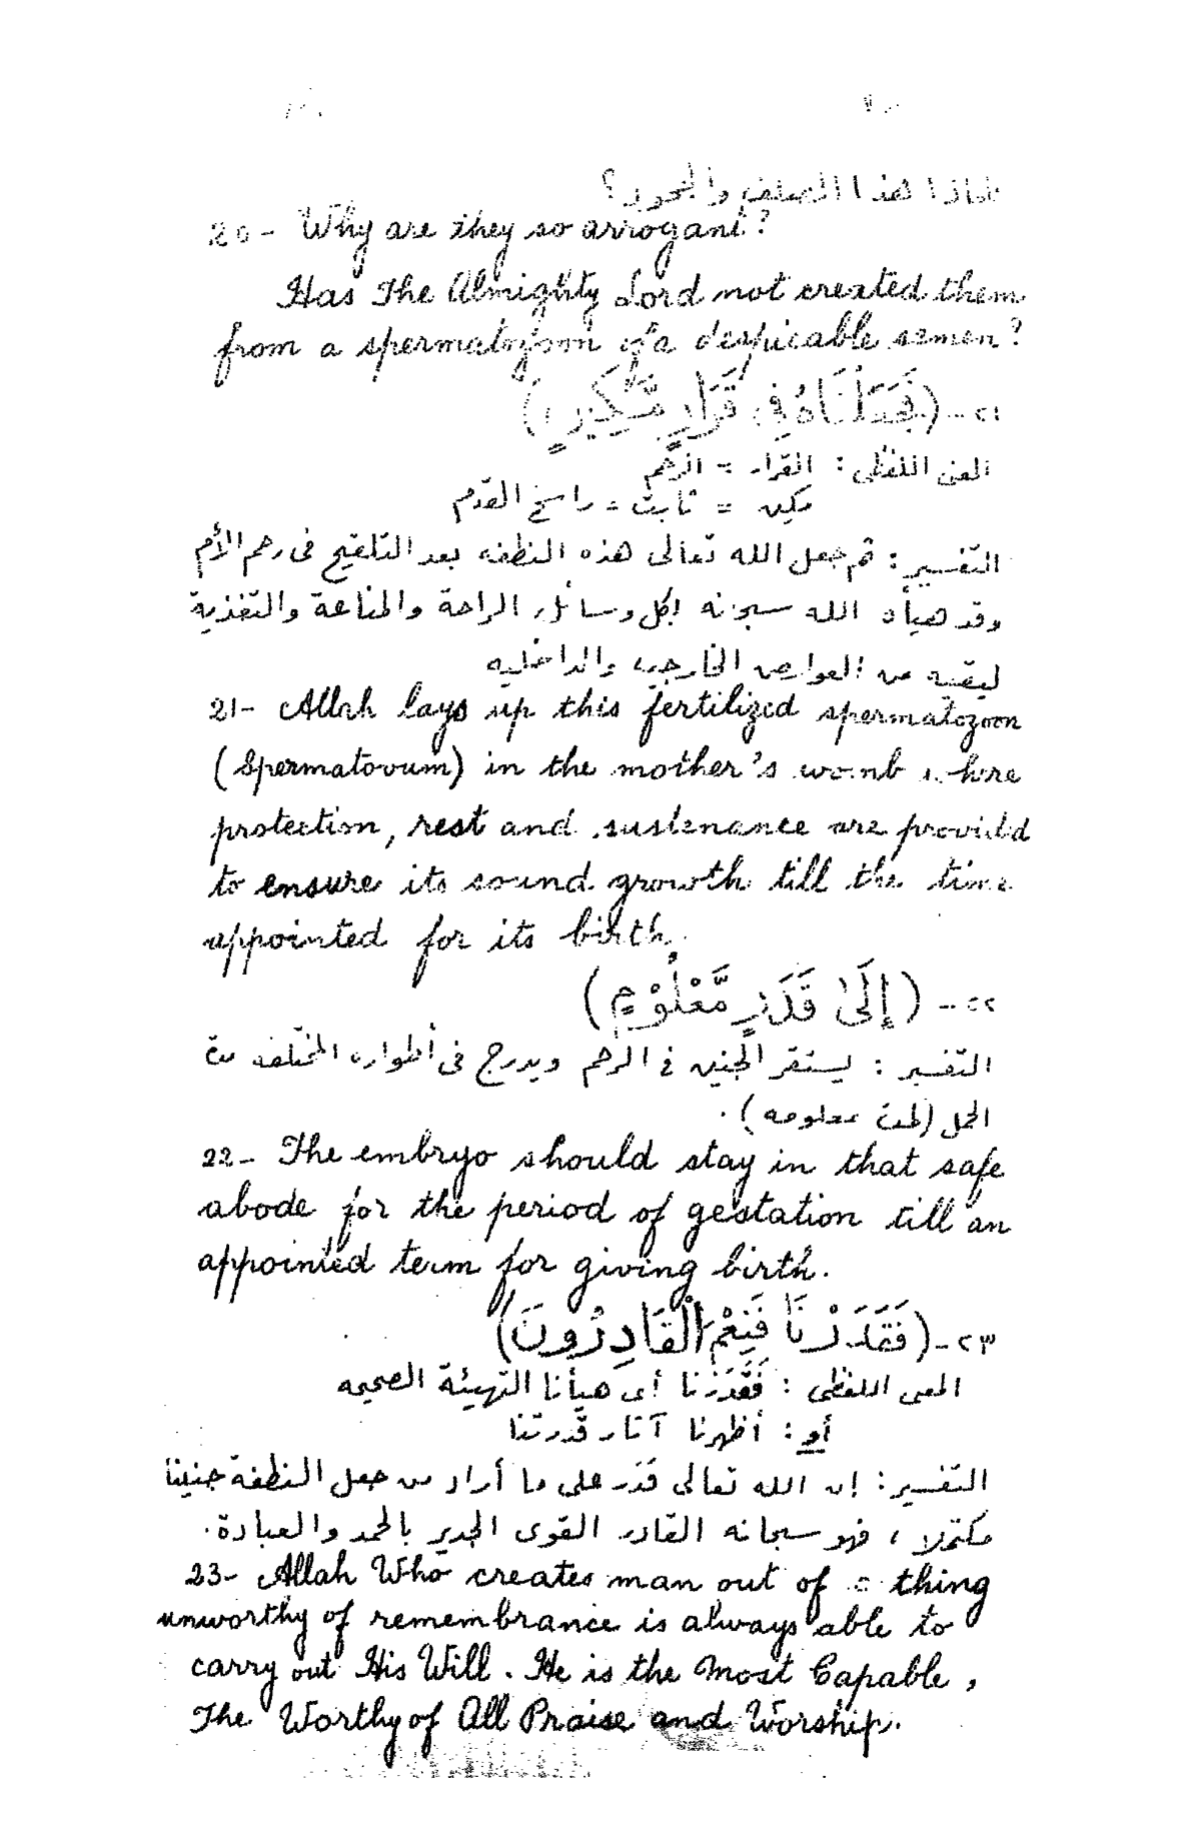 لماذا هذا الصلف والجحود؟
20- Why are they so arrogant?
Has The Almighty Lord not created them
from a spermatozoon of a despicable semen?
٢١- (فَجَعَلْنَاهُ فِي قَرَارٍ مَّكِينٍ)
المعنى اللفظى : القرار = الرحم
مكين = ثابت = راسخ القدم
التفسير : ثم جعل الله تعالى هذه النطفه بعد التلقيح فى رحم الأم
وقد هيأه الله سبحانه بكل وسائل الراحة والمناعة والتغذية
ليقيه من العوارض الخارجيه والداخليه
21- Allah lays up this fertilized spermatozoon
(Spermatovum) in the mother's womb where
protection, rest and sustenance are provided
to ensure its sound growth till the time
appointed for its birth.
٢٢- (إِلَىٰ قَدَرٍ مَّعْلُوْمٍ)
التفسير : يستقر الجنين فى الرحم ويدرج فى أطواره المختلفه مدة
الحمل (لمدة معلومه) .
22- The embryo should stay in that safe
abode for the period of gestation till an
appointed term for giving birth.
٢٣- (فَقَدَرْنَا فَنِعْمَ الْقَادِرُونَ)
المعنى اللفظى : فَقَدَرْنا أى هيأنا التهيئة الصحيحه
أو : أظهرنا آثار قدرتنا
التفسير : إن الله تعالى قدر على ما أراد من جعل النطفة جنيناً
مكتملا ، فهو سبحانه القادر القوى الجدير بالحمد والعبادة .
23- Allah Who creates man out of a thing
unworthy of remembrance is always able to
carry out His Will. He is the Most Capable,
The Worthy of All Praise and Worship.